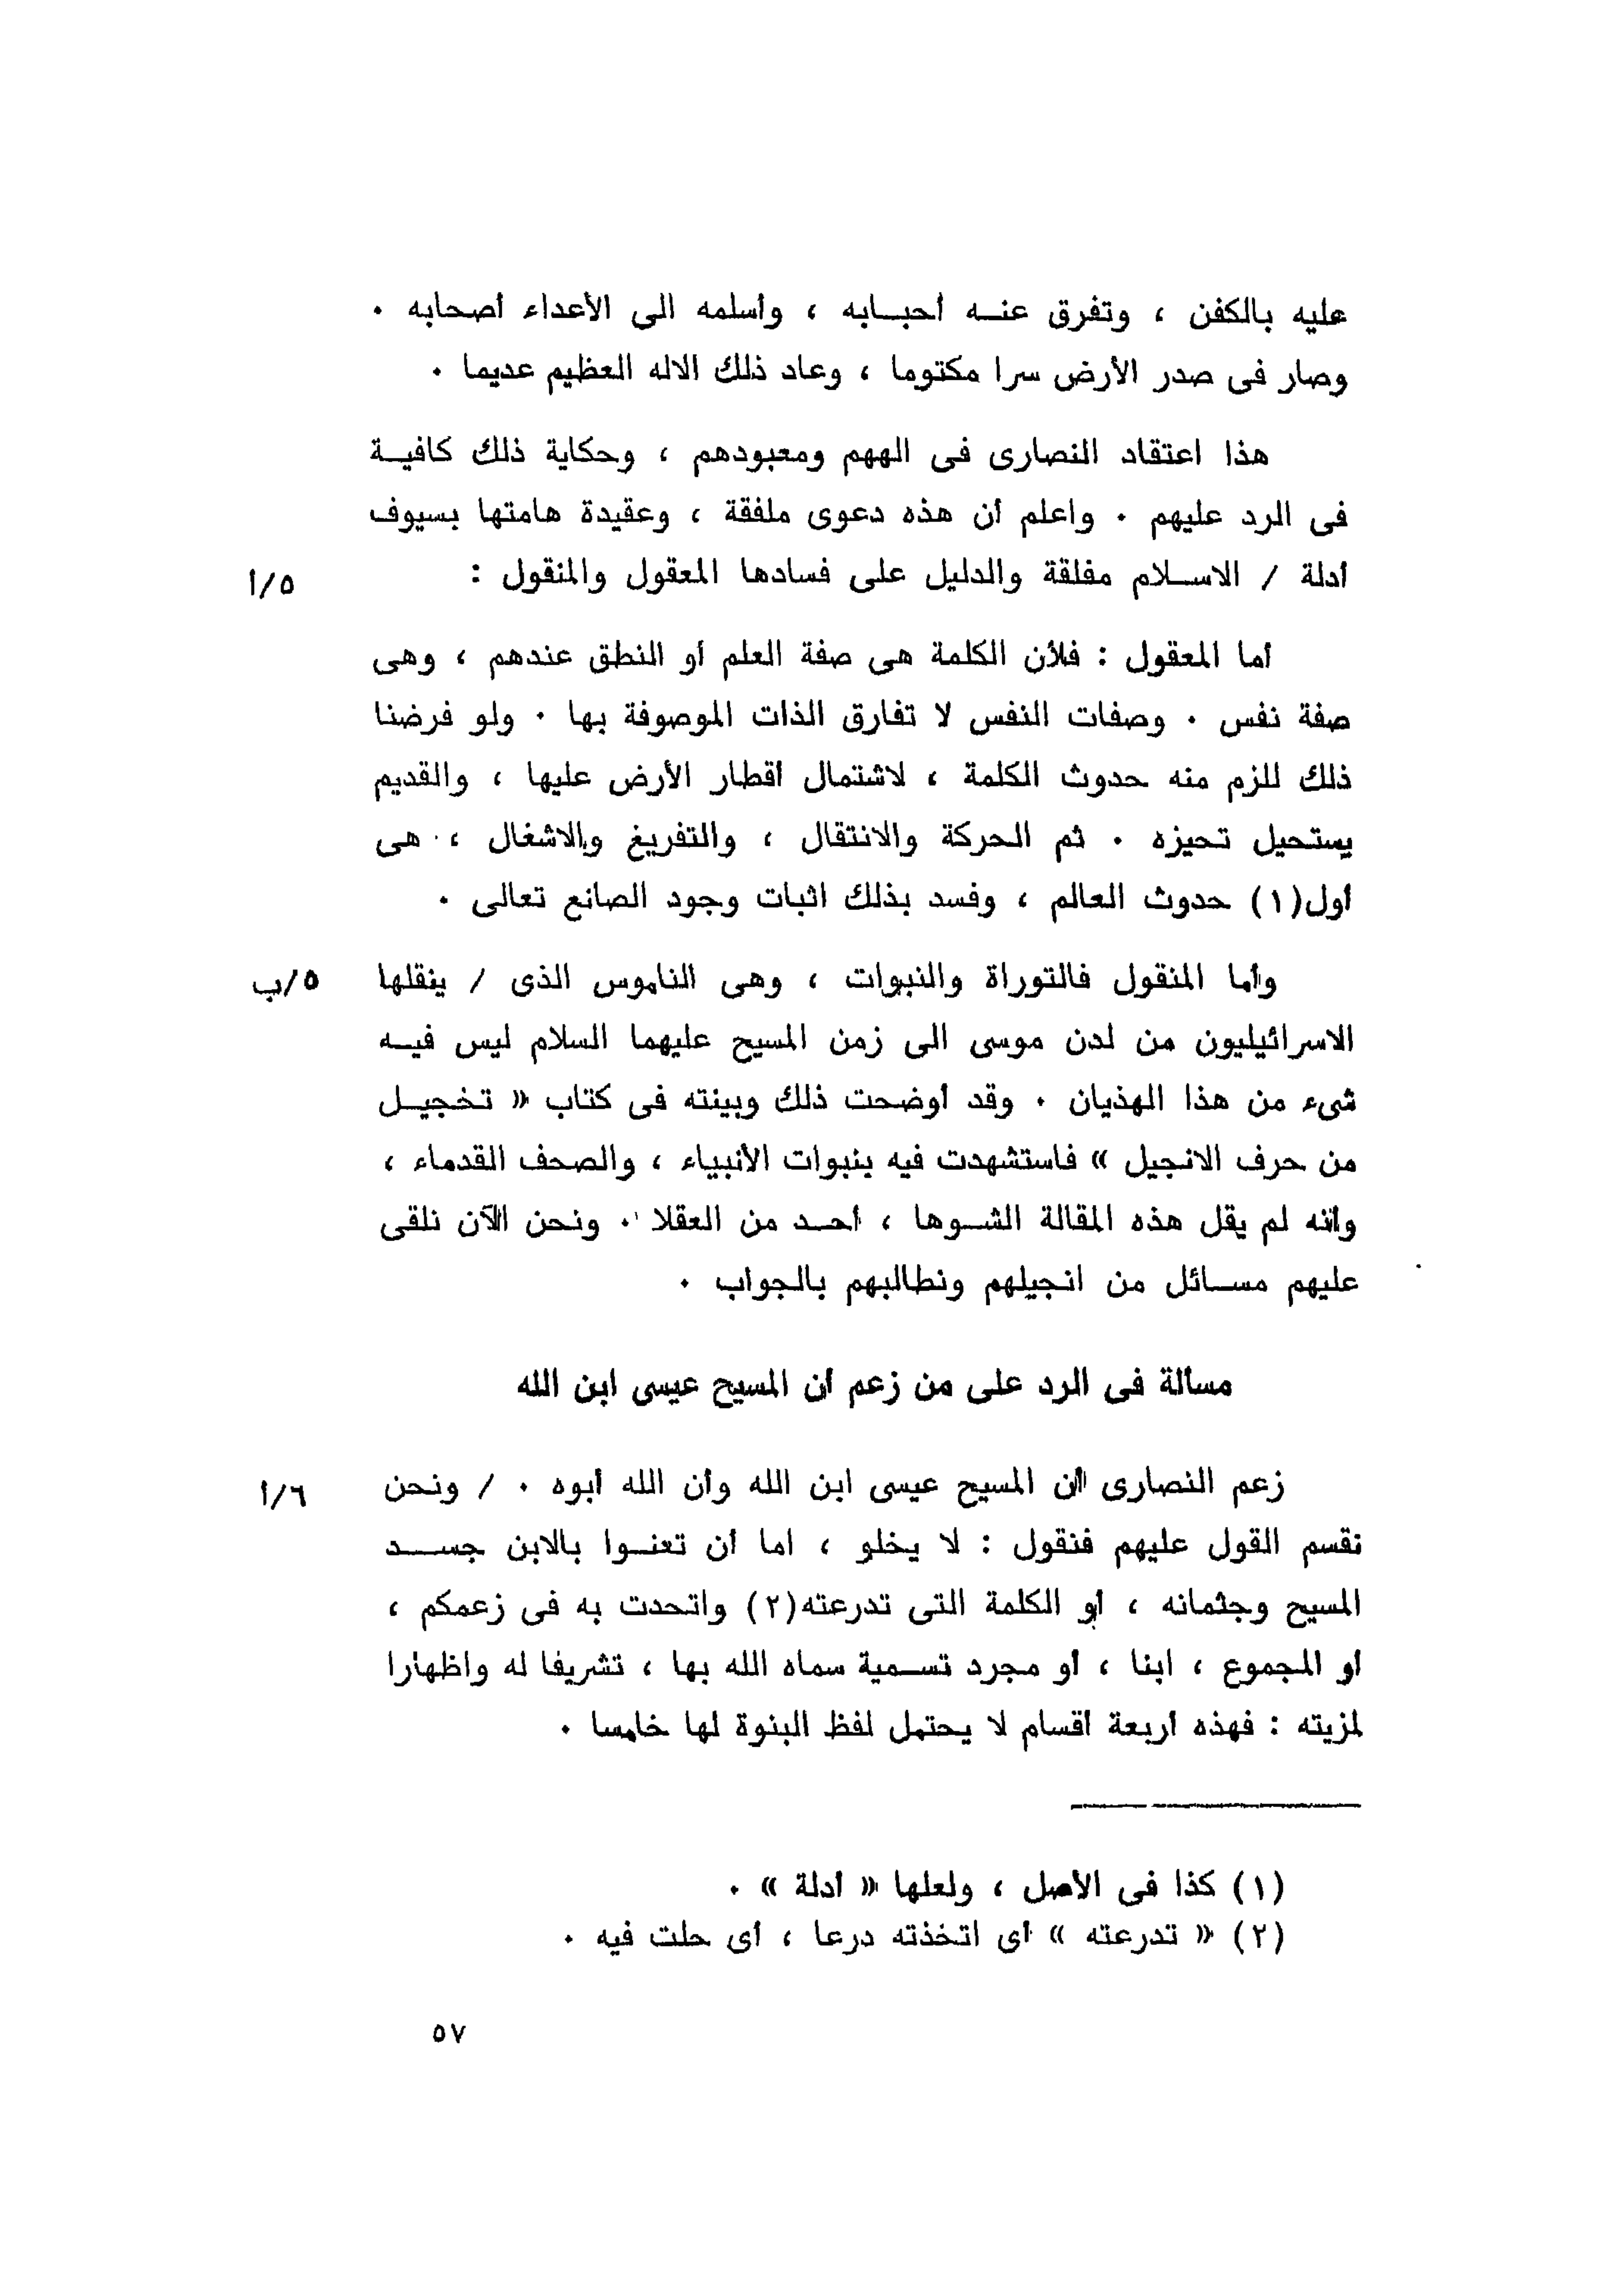 عليه بالكفن ، وتفرق عنـه أحبـابه ، وأسلمه الى الأعداء أصحابه .
وصار فى صدر الأرض سرا مكتوما ، وعاد ذلك الاله العظيم عديما .
هذا اعتقاد النصارى فى الههم ومعبودهم ، وحكاية ذلك كافيـة
فى الرد عليهم . واعلم أن هذه دعوى ملفقة ، وعقيدة هامتها بسيوف
أدلة / الاسـلام مفلقة والدليل على فسادها المعقول والمنقول :
٥/أ
أما المعقول : فلأن الكلمة هى صفة العلم أو النطق عندهم ، وهى
صفة نفس . وصفات النفس لا تفارق الذات الموصوفة بها . ولو فرضنا
ذلك للزم منه حدوث الكلمة ، لاشتمال أقطار الأرض عليها ، والقديم
يستحيل تحيزه . ثم الحركة والانتقال ، والتفريغ والاشغال ، هى
أول(١) حدوث العالم ، وفسد بذلك اثبات وجود الصانع تعالى .
وأما المنقول فالتوراة والنبوات ، وهى الناموس الذى / ينقلها
٥/ب
الاسرائيليون من لدن موسى الى زمن المسيح عليهما السلام ليس فيـه
شىء من هذا الهذيان . وقد أوضحت ذلك وبينته فى كتاب « تخجيـل
من حرف الانجيل » فاستشهدت فيه بنبوات الأنبياء ، والصحف القدماء ،
وأنه لم يقل هذه المقالة الشـوها ، أحـد من العقلا . ونحن الآن نلقى
عليهم مسـائل من انجيلهم ونطالبهم بالجواب .
مسألة فى الرد على من زعم أن المسيح عيسى ابن الله
زعم النصارى أن المسيح عيسى ابن الله وأن الله أبوه . / ونحن
٦/أ
نقسم القول عليهم فنقول : لا يخلو ، اما أن تعنـوا بالابن جسـد
المسيح وجثمانه ، أو الكلمة التى تدرعته(٢) واتحدت به فى زعمكم ،
أو المجموع ، ابنا ، أو مجرد تسـمية سماه الله بها ، تشريفا له واظهارا
لمزيته : فهذه أربعة أقسام لا يحتمل لفظ البنوة لها خامسا .
(١) كذا فى الأصل ، ولعلها « أدلة » .
(٢) « تدرعته » أى اتخذته درعا ، أى حلت فيه .
٥٧